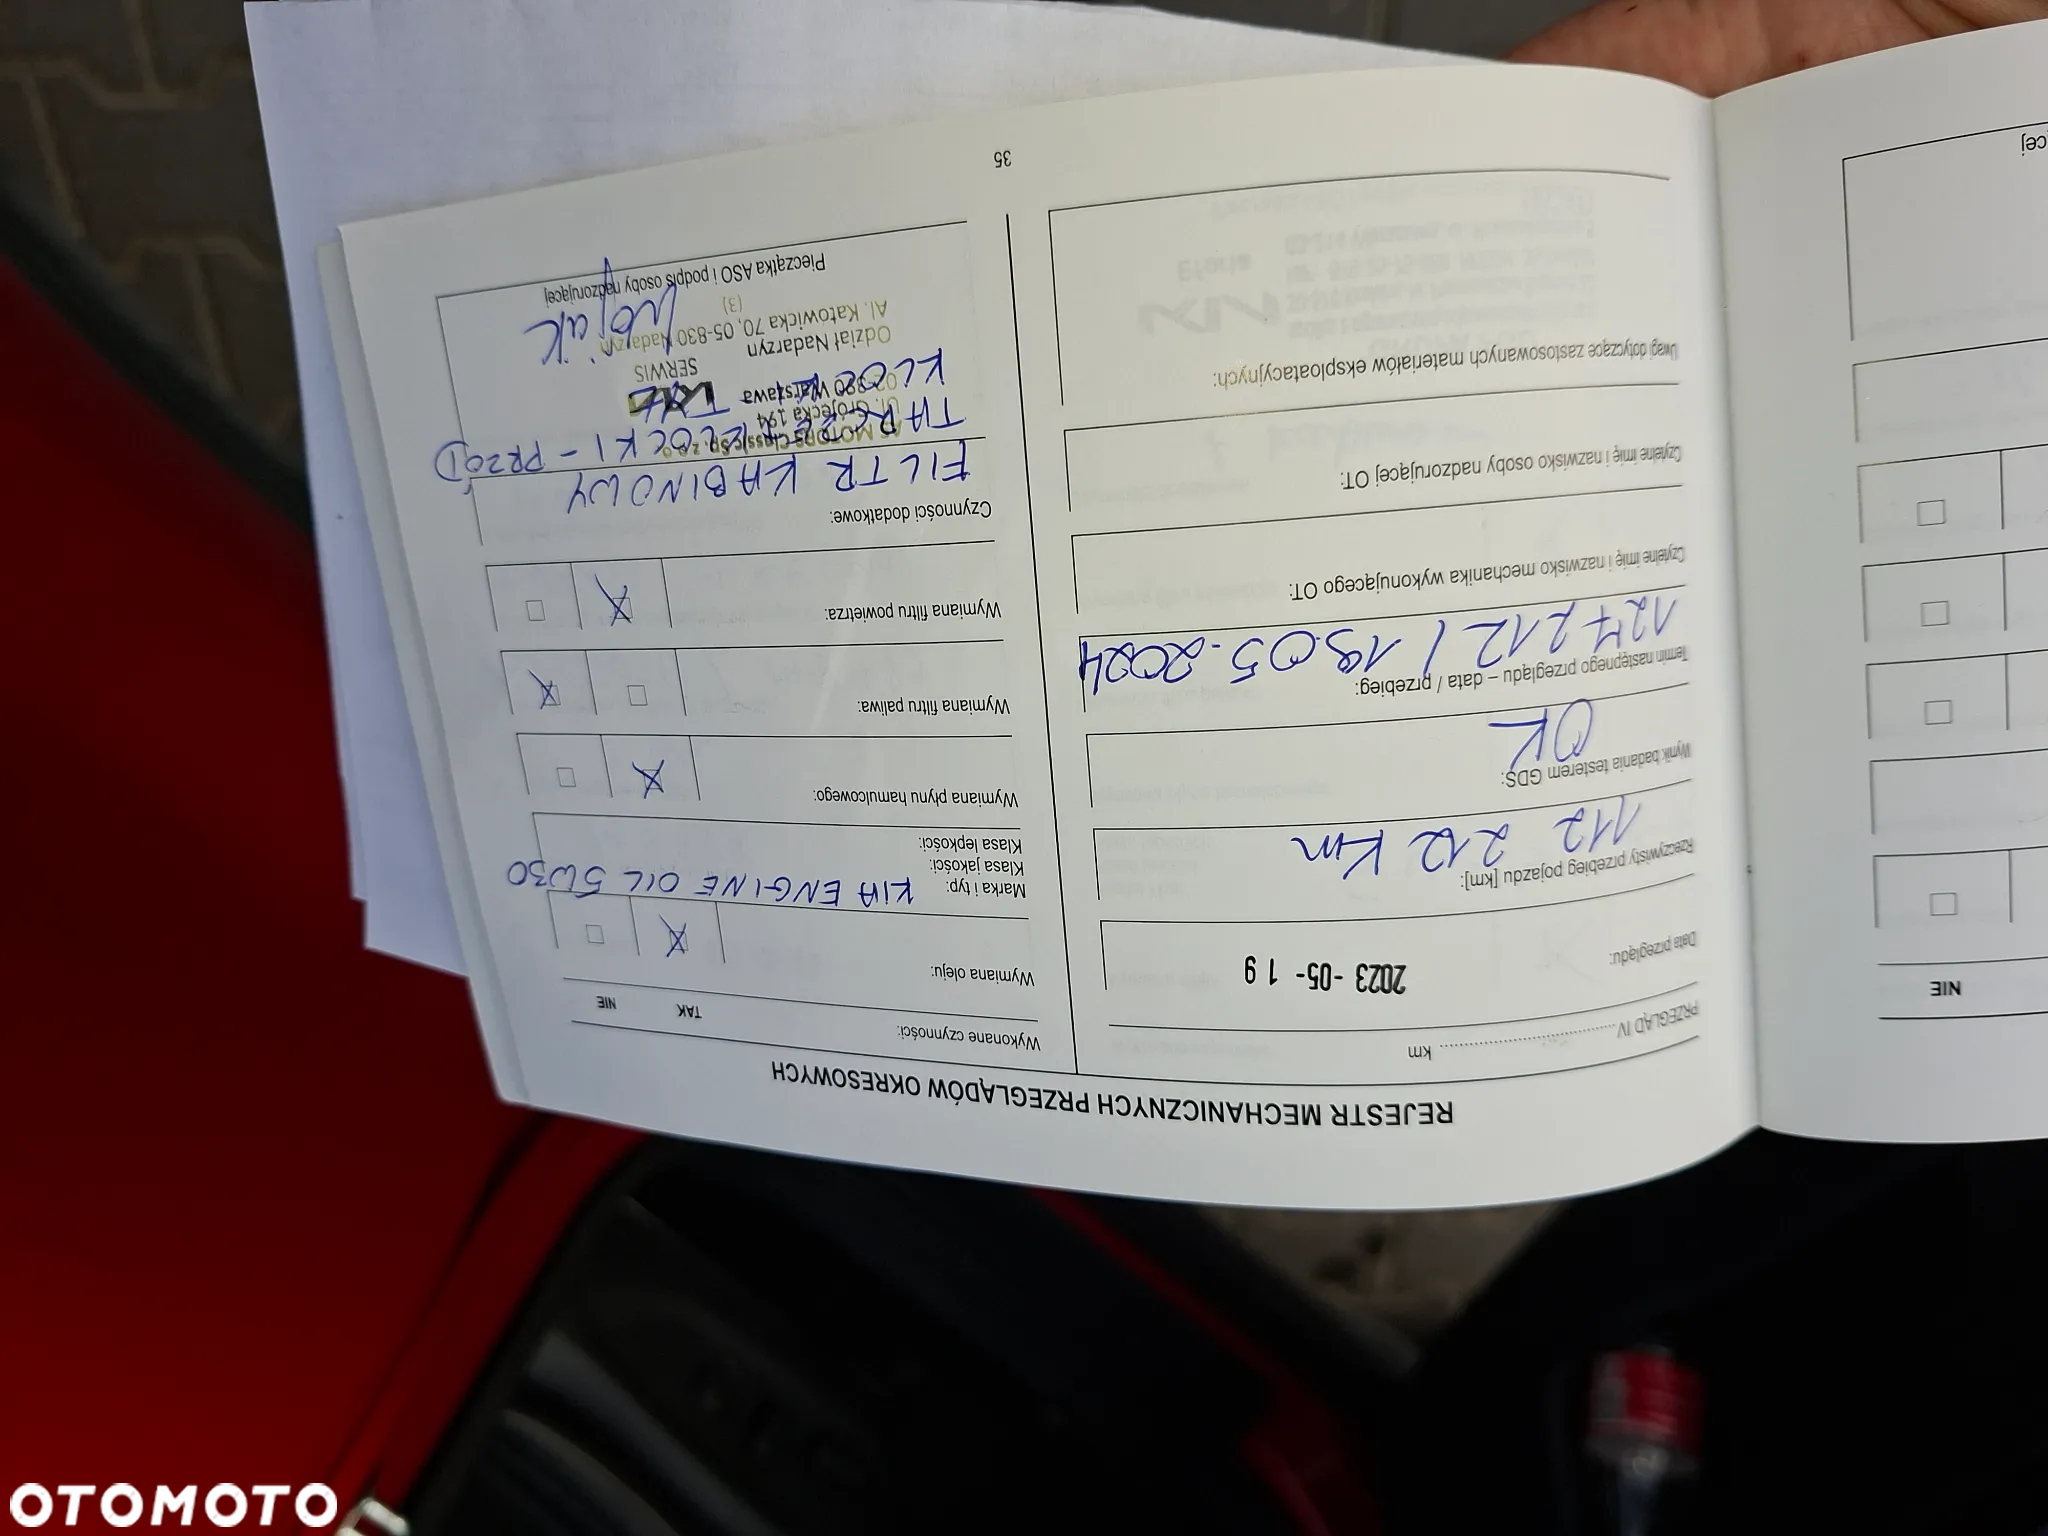 REJESTR MECHANICZNYCH PRZEGLĄDÓW OKRESOWYCH
PRZEGLĄD IV ........................ km
Data przeglądu:
2023 -05- 19
Rzeczywisty przebieg pojazdu [km]:
112 212 Km
Wynik badania testerem GDS:
OK
Termin następnego przeglądu – data / przebieg:
127 212 / 19.05.2024
Czytelne imię i nazwisko mechanika wykonującego OT:
Czytelne imię i nazwisko osoby nadzorującej OT:
Uwagi dotyczące zastosowanych materiałów eksploatacyjnych:
Wykonane czynności: TAK NIE
Wymiana oleju:
Marka i typ: KIA ENGINE OIL 5W30
Klasa jakości:
Klasa lepkości:
Wymiana płynu hamulcowego:
Wymiana filtru paliwa:
Wymiana filtru powietrza:
Czynności dodatkowe:
FILTR KABINOWY
TARCZE + KLOCKI - PRZÓD
KLOCKI TYŁ
MOTORS Classic Sp. z o.o.
Ul. Grójecka 194
02-390 Warszawa
SERWIS
Odział Nadarzyn
Al. Katowicka 70, 05-830 Nadarzyn
(3)
Pieczątka ASO i podpis osoby nadzorującej
35
NIE
cej
OTOMOTO